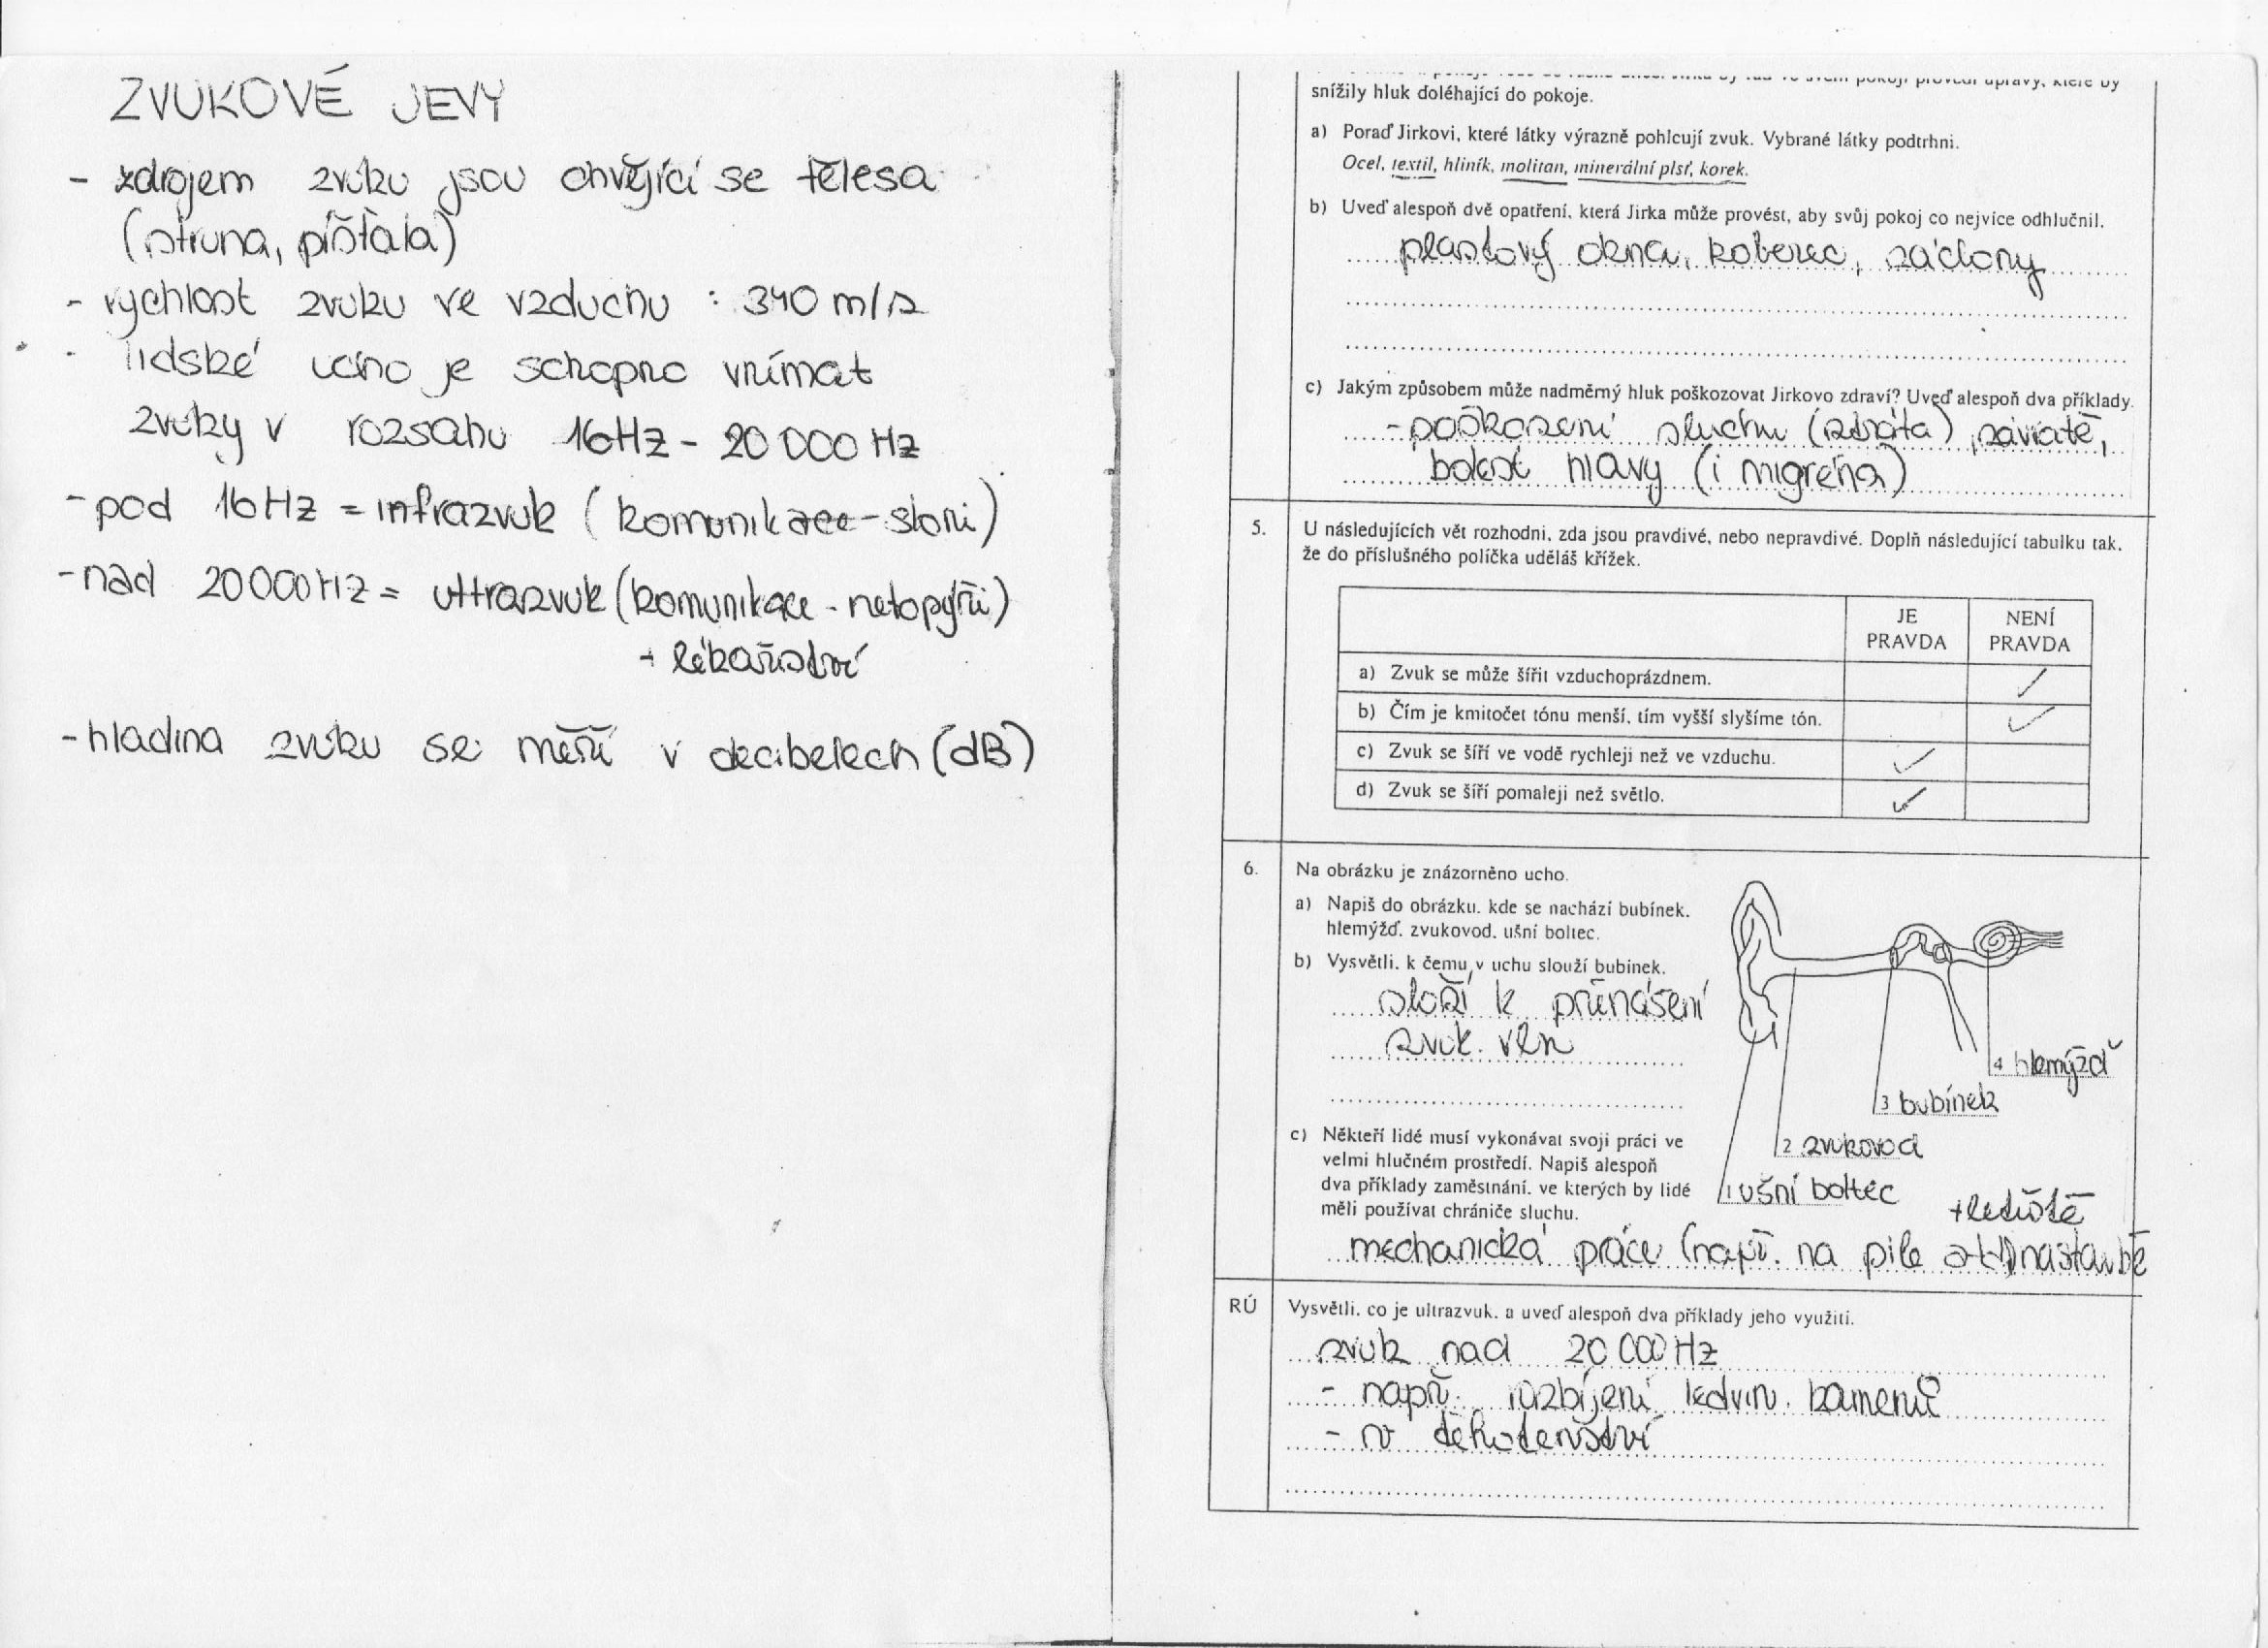 ZVUKOVÉ JEVY
- zdrojem zvuku jsou chvějící se tělesa
(struna, píšťala)
- rychlost zvuku ve vzduchu : 340 m/s
- lidské ucho je schopno vnímat
zvuky v rozsahu 16Hz - 20 000 Hz
- pod 16Hz = infrazvuk (komunikace - sloni)
- nad 20000Hz = ultrazvuk (komunikace - netopýři)
+ lékařství
- hladina zvuku se měří v decibelech (dB)
snížily hluk doléhající do pokoje.
a) Poraď Jirkovi, které látky výrazně pohlcují zvuk. Vybrané látky podtrhni.
Ocel, textil, hliník, molitan, minerální plsť, korek.
b) Uveď alespoň dvě opatření, která Jirka může provést, aby svůj pokoj co nejvíce odhlučnil.
plastový okna, koberec, záclony
c) Jakým způsobem může nadměrný hluk poškozovat Jirkovo zdraví? Uveď alespoň dva příklady.
- poškození sluchu (ztráta), závratě,
bolest hlavy (i migréna)
5. U následujících vět rozhodni, zda jsou pravdivé, nebo nepravdivé. Doplň následující tabulku tak,
že do příslušného políčka uděláš křížek.
JE PRAVDA NENÍ PRAVDA
a) Zvuk se může šířit vzduchoprázdnem. ✓
b) Čím je kmitočet tónu menší, tím vyšší slyšíme tón. ✓
c) Zvuk se šíří ve vodě rychleji než ve vzduchu. ✓
d) Zvuk se šíří pomaleji než světlo. ✓
6. Na obrázku je znázorněno ucho.
a) Napiš do obrázku, kde se nachází bubínek,
hlemýžď, zvukovod, ušní boltec.
b) Vysvětli, k čemu v uchu slouží bubínek.
slouží k přenášení
zvuk. vln
4 hlemýžď
3 bubínek
2 zvukovod
1 ušní boltec
c) Někteří lidé musí vykonávat svoji práci ve
velmi hlučném prostředí. Napiš alespoň
dva příklady zaměstnání, ve kterých by lidé
měli používat chrániče sluchu.
+ letiště
mechanická práce (např. na pile na stavbě
RÚ Vysvětli, co je ultrazvuk, a uveď alespoň dva příklady jeho využití.
zvuk nad 20 000 Hz
- např. rozbíjení ledvin. kamenů
- v těhotenství